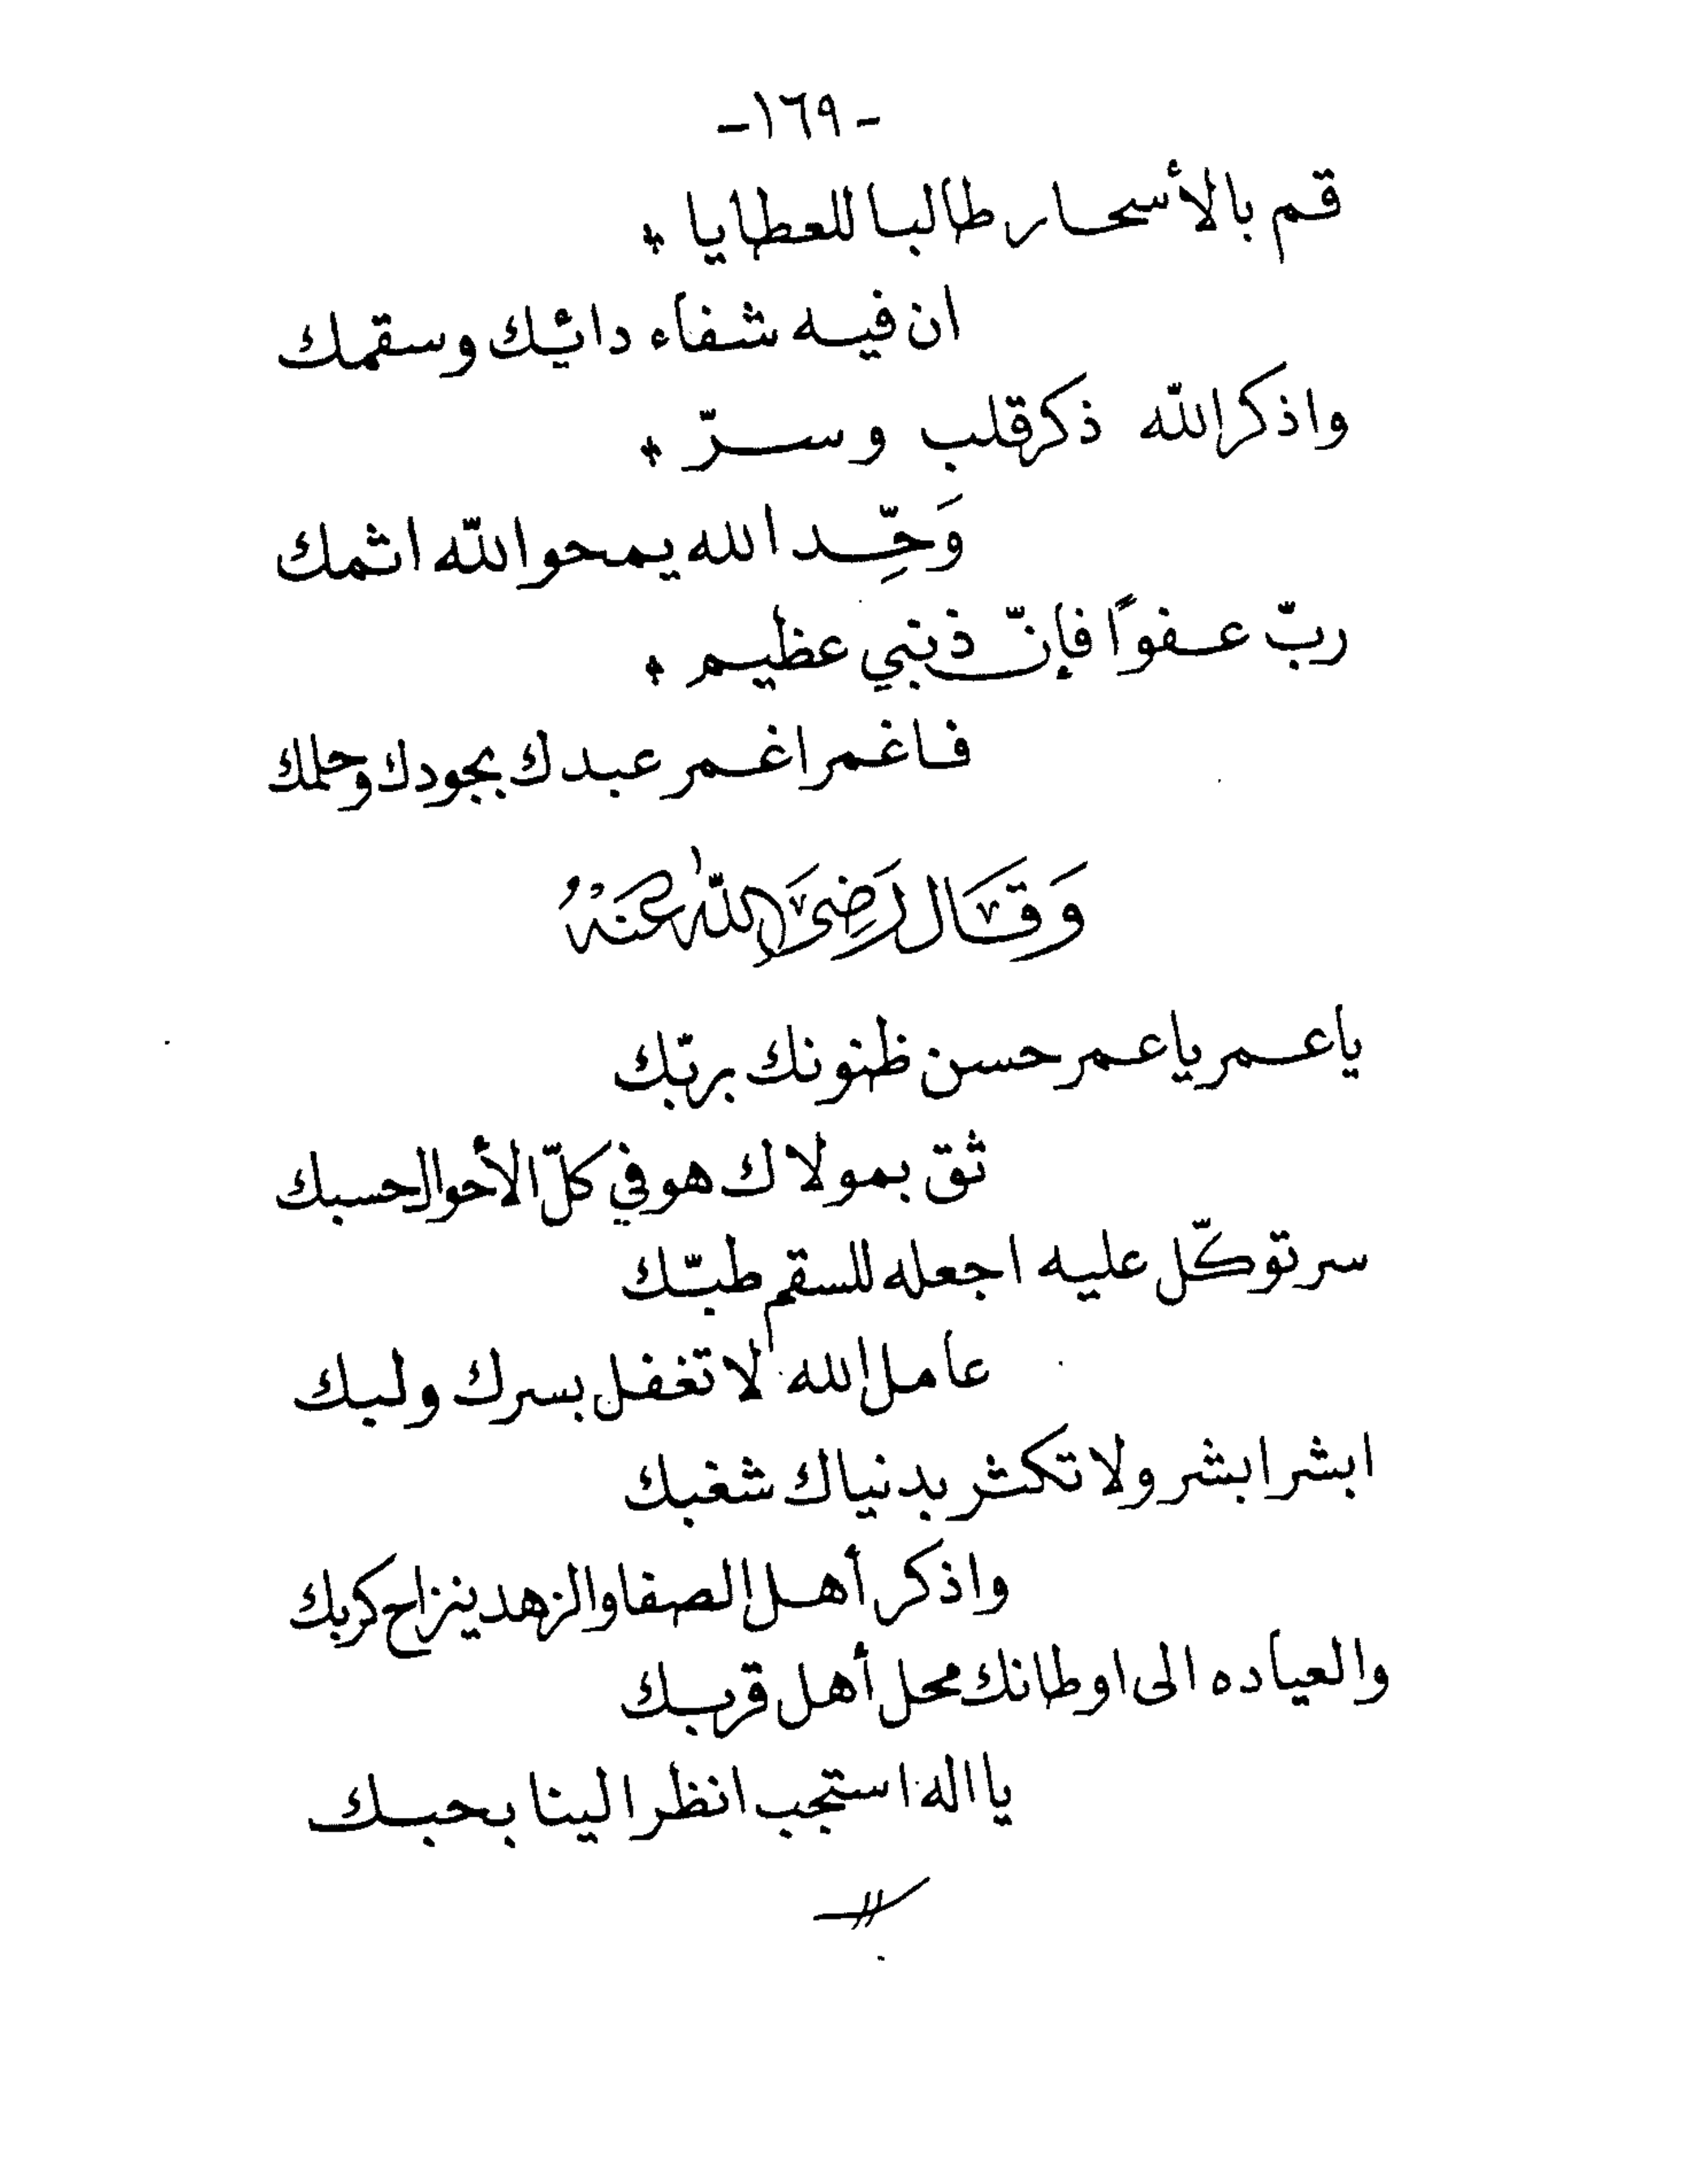 -١٦٩-
قم بالأسحار طالبا للعطايا *
ان فيه شفاء دائك وسقمك
واذكر الله ذكر قلب وسرّ *
وَحِّد الله يمحو اللّه اثمك
ربّ عفوًا فإنّ ذنبي عظيم *
فاغمر اغمر عبدك بجودك وحلمك
وَقَال رَضِىَ اللّٰهُ عَنْهُ
ياعمر ياعمر حسن ظنونك بربّك
ثق بمولاك هو في كلّ الأحوال حسبك
سر توكّل عليه اجعله للسقم طبّك
عامل الله لا تغفل بسرك ولبك
ابشر ابشر ولا تكثر بدنياك شغبك
واذكر أهل الصفا والزهد ينزاح كربك
والعياده الى اوطانك محل أهل قربك
يا اله استجب انظر الينا بحبك